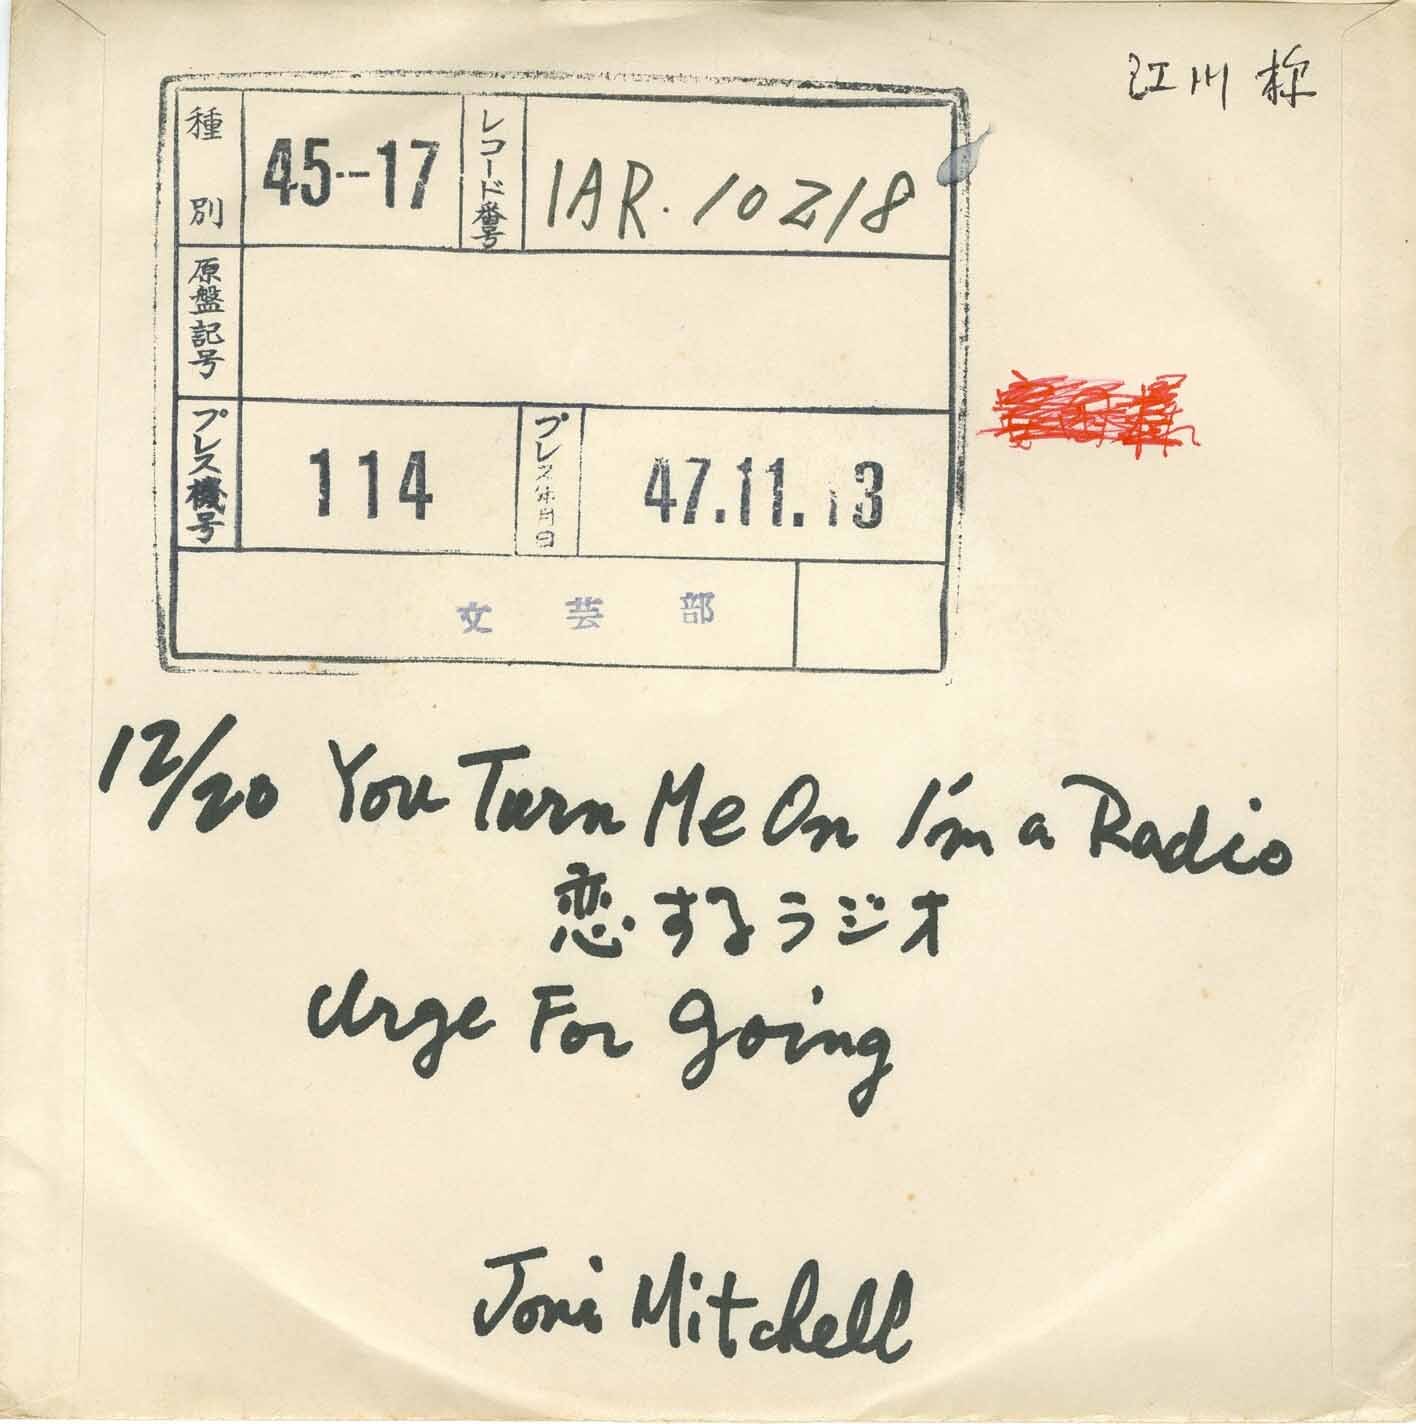 江川 様
種別 45--17 レコード番号 1AR.10218
原盤記号
プレス機号 114 プレス年月日 47.11.13
文芸部
12/20 You Turn Me On I'm a Radio
恋するラジオ
Urge For Going
Joni Mitchell